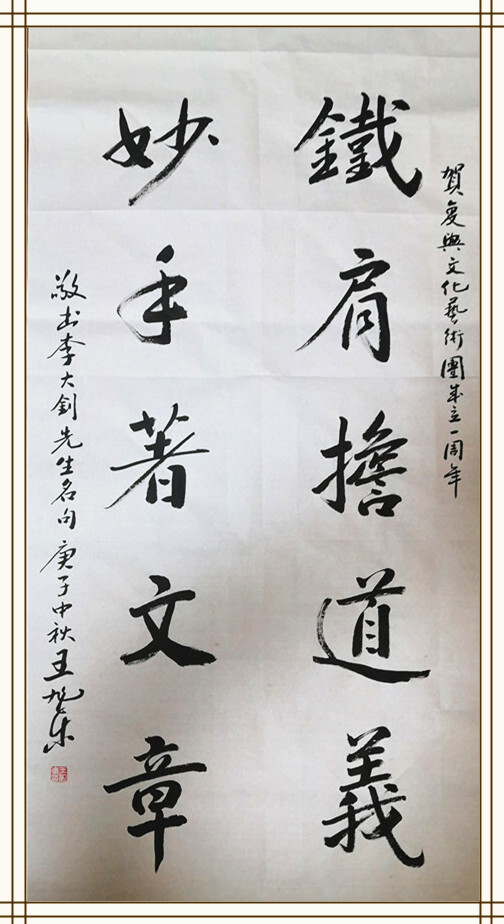 賀復興文化藝術團成立一周年
鐵肩擔道義
妙手著文章
敬书李大釗先生名句 庚子中秋 王旭東